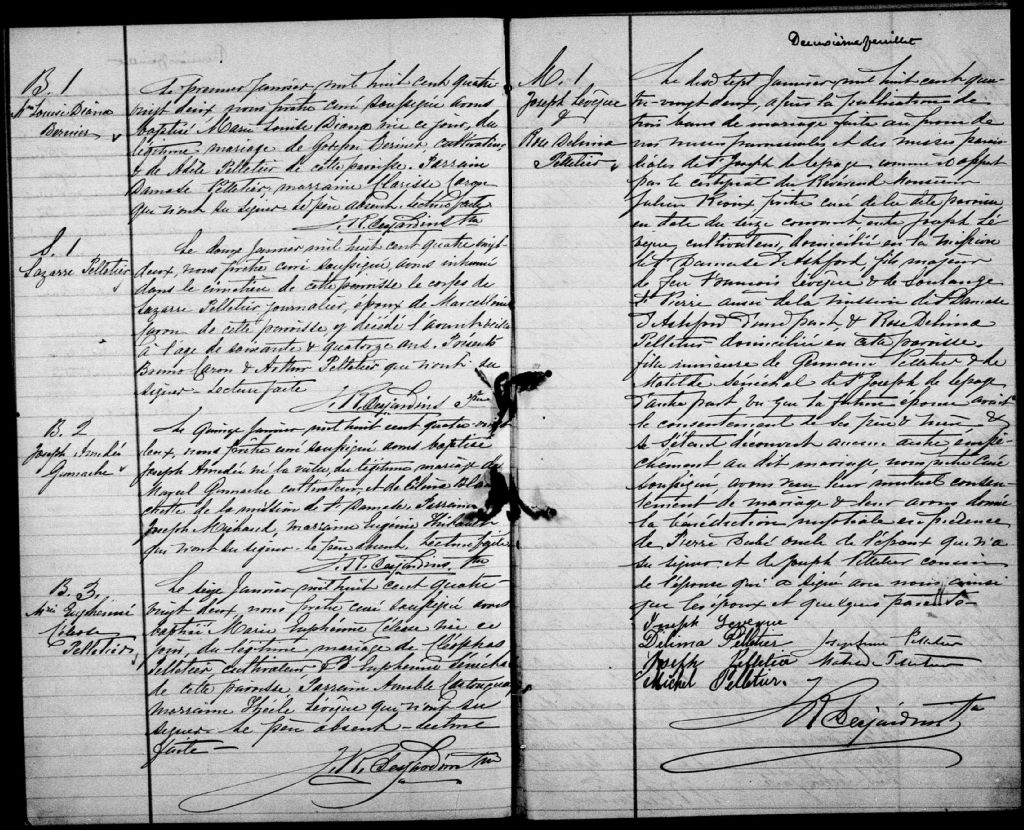 B. 1
Mie Louise Diana
Dernier
Le premier Janvier mil huit cent quatre
vingt deux, nous prêtre curé soussigné avons
baptisé Marie Louise Diana née ce jour, du
légitime mariage de Joseph Dernier, cultivateur
& de Adèle Pelletier de cette paroisse. Parrain
Damase Pelletier, marraine Clarisse
qui n'ont su signer. Le père absent. Lecture faite
J. R. Desjardins Ptre
S. 1
Lazarre Pelletier
Le douze Janvier mil huit cent quatre vingt
deux, nous prêtre curé soussigné, avons inhumé
dans le cimetière de cette paroisse le corps de
Lazarre Pelletier journalier, époux de Marcelline
Caron de cette paroisse, décédé l'avant-veille
à l'age de soixante & quatorze ans. Présents
Bruno Caron & Arthur Pelletier qui n'ont su
signer - Lecture faite
J. R. Desjardins Ptre
B. 2
Joseph Amedé
Gamache
Le Quinze Janvier mil huit cent quatre-vingt
deux, nous prêtre curé soussigné avons baptisé
Joseph Amedé né la veille, du légitime mariage de
Marcel Gamache cultivateur, et de Célina
de la mission de St Damase. Parrain
Joseph Michaud, marraine Eugénie Thibault
qui n'ont su signer. Le père absent. Lecture faite
J. R. Desjardins. Ptre
B. 3.
Mie Euphémie
Célese
Pelletier
Le seize Janvier mil huit cent quatre-
vingt deux, nous prêtre curé soussigné avons
baptisé Marie Euphémie Célese née ce
jour, du légitime mariage de Cléophas
Pelletier cultivateur, & d'Euphémie Sénéchal
de cette paroisse, Parrain Amable
marraine Lévêque qui n'ont su
signer. Le père absent - Lecture
faite -
J. R. Desjardins Ptre
Deuxième feuillet
M. 1
Joseph Levêque
&
Rose Delima
Pelletier
Le dix sept Janvier mil huit cent qua-
tre-vingt deux, après la publication de
trois bans de mariage faite au prône de
nos messes paroissiales et des messes parois-
siales de St Joseph de Lepage, comme il appert
par le certificat du Révérend Monsieur
Julien Rioux prêtre curé de la dite paroisse
en date du seize courant, entre Joseph Lé-
vêque, cultivateur, domicilié en la mission
de St Damase d'Ashford, fils majeur
de feu François Lévêque & de Soulange
St Pierre aussi de la mission de St Damase
d'Ashford d'une part, & Rose Delima
Pelletier domiciliée en cette paroisse,
fille mineure de Germain Pelletier & de
Matilde Sénéchal de St Joseph de Lepage
d'autre part vu que la future épouse avait
le consentement de ses père & mère, &
ne s'étant découvert aucun autre empê-
chement au dit mariage, nous prêtre curé
soussigné avons reçu leur mutuel consen-
tement de mariage & leur avons donné
la bénédiction nuptiale en présence
de Pierre Dubé oncle de l'époux qui n'a
su signer et de Joseph Pelletier cousin
de l'épouse qui a signé avec nous, ainsi
que les époux et quelques
Joseph Leveque
Delima Pelletier
Pelletier
Joseph Pelletier
Michel Pelletier.
J R Desjardins Ptre